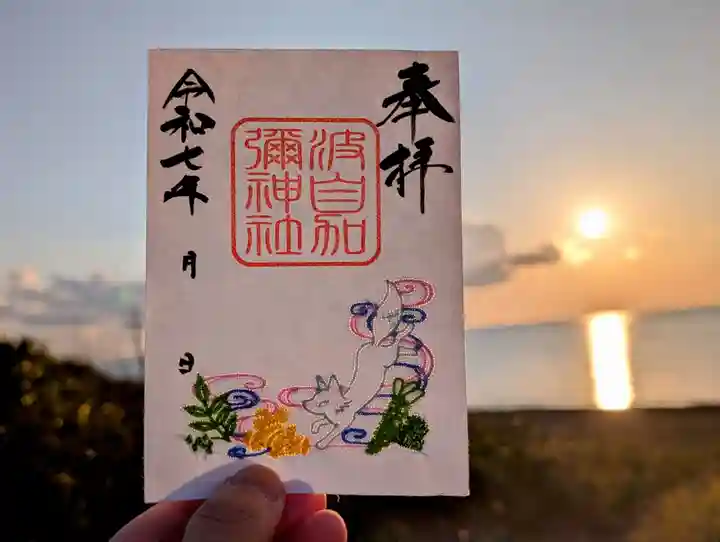 奉拝
波自加
彌神社
令和七年 月 日